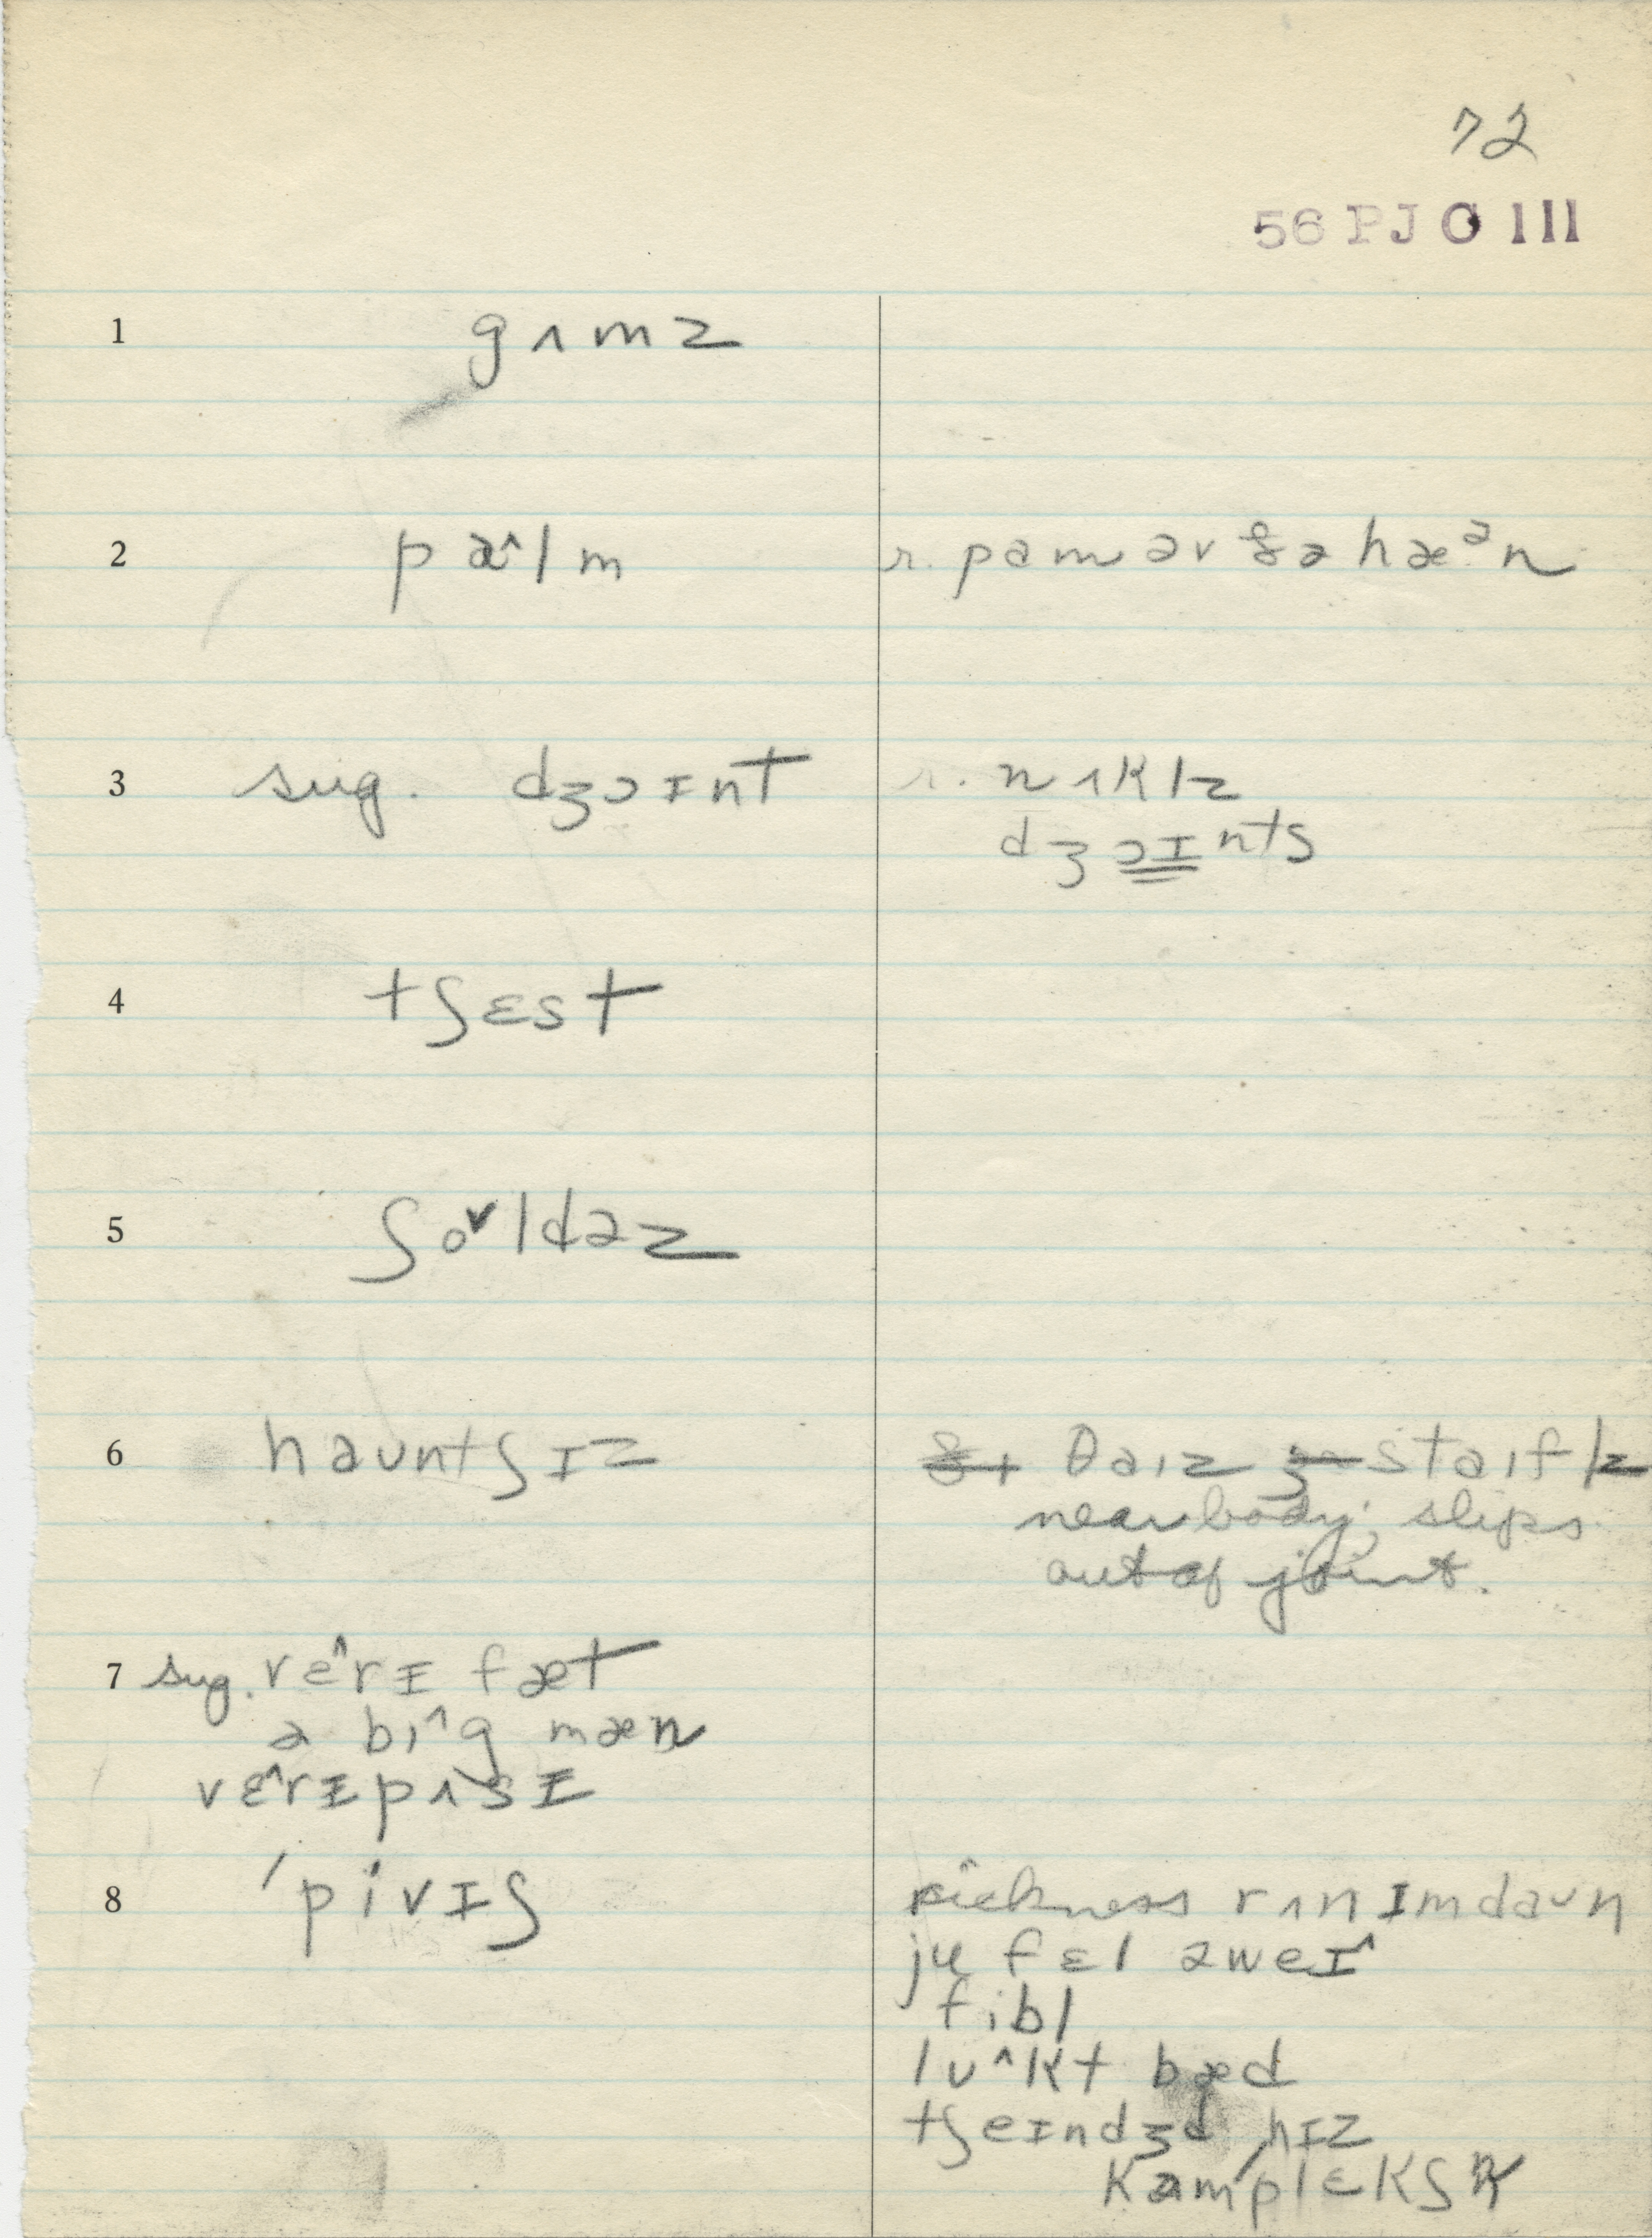 72
56 PJ C 111
1 gʌmz
2 pɑ^lm r. pɑm əv ðə hæᵊn
3 sug. dʒɔɪnt r. nʌklz
dʒɔɪnts
4 tʃɛst
5 ʃo˅ldəz
6 haʊntʃɪz θaɪz staɪflz
near body, slips
out of joint.
7 sug. vɛ^rɪ fæt
ə bɪ^g mæn
vɛ^rɪ pʌsɪ
8 ˈpivɪʃ sickness rʌn ɪm daʊn
ju fɛl əweɪ^
fibl
lʊ^kt bæd
tʃeɪndʒd hɪz
kəmˈplɛkʃn̩